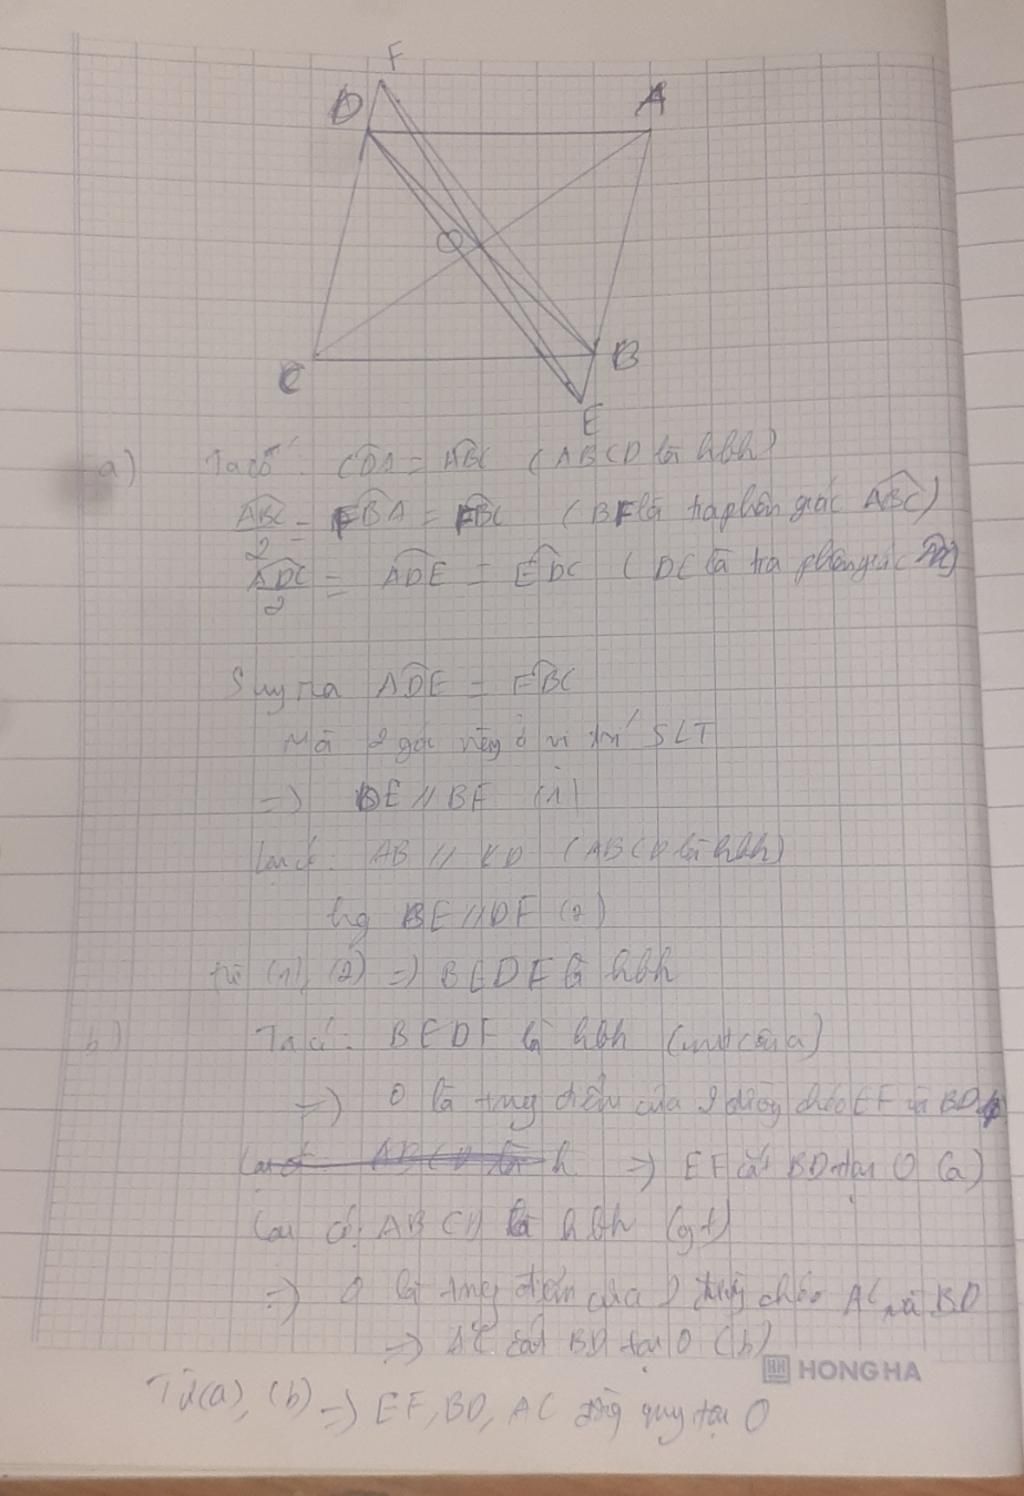 F
D
A
O
C
B
E
a) Ta có: CDA = ABC (ABCD là hbh)
ABC/2 = FBA = FBC (BF là tia phân giác ABC)
ADC/2 = ADE = EDC (DC là tia phân giác
Suy ra ADE = FBC
Mà 2 góc này ở vị trí SLT
=> DE // BF (1)
Lại có: AB // CD (ABCD là hbh)
hay BE // DF (2)
từ (1), (2) => BEDF là hbh
b) Ta có: BEDF là hbh (câu a)
=> O là trung điểm của 2 đường chéo EF và BD
=> EF cắt BD tại O (a)
Lại có ABCD là hbh (gt)
=> O là trung điểm của 2 đường chéo AC và BD
=> AC cắt BD tại O (b)
HH HONG HA
Từ (a), (b) => EF, BD, AC đồng quy tại O